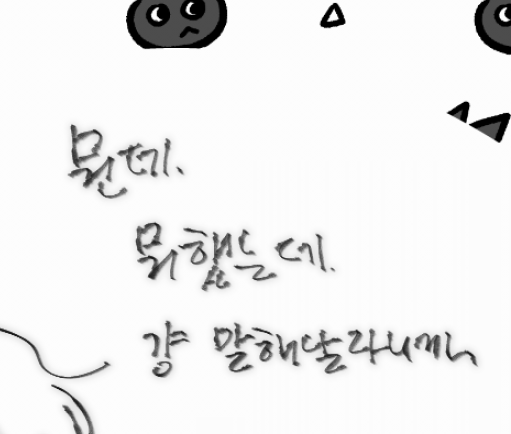 뭔데.
뭐했는데.
걍 말해달라니까